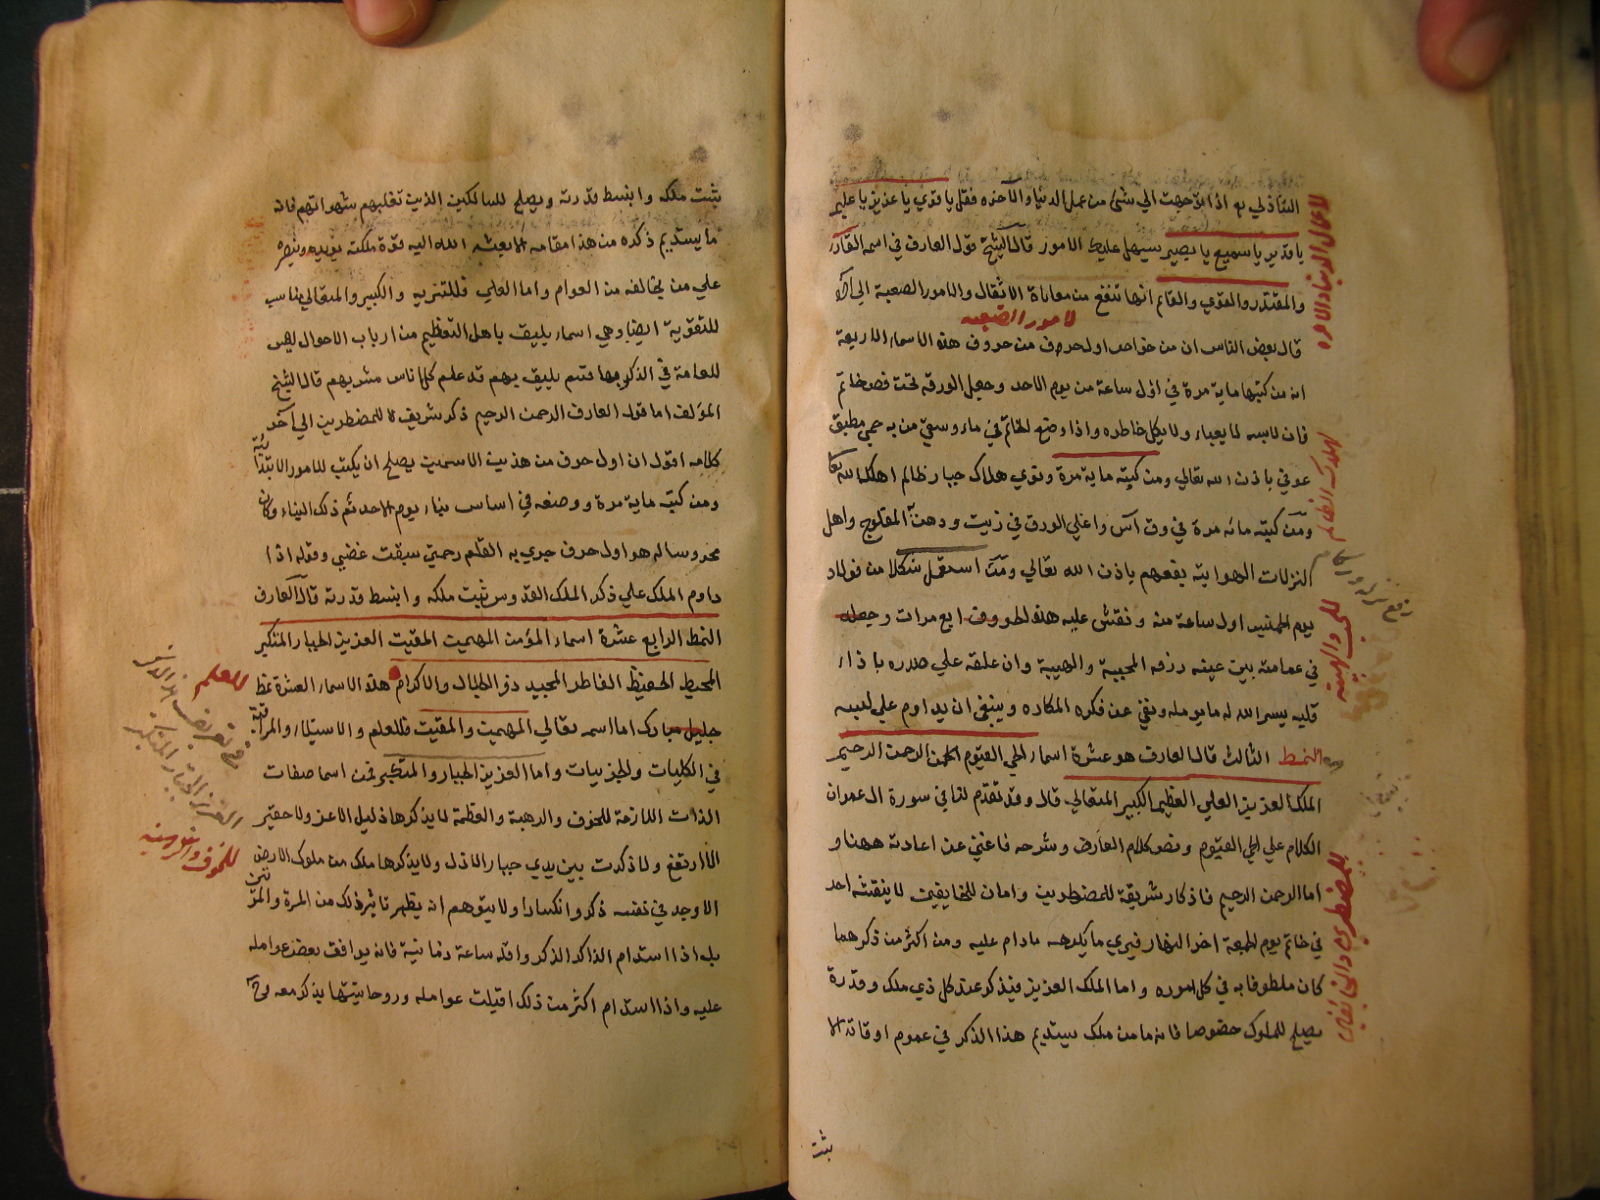 الشاذلي به اذا احتجت الي شئ من عمل الدنيا والآخره فقل يا قوي يا عزيز يا عليم
يا قدير يا سميع يا بصير سيهل عليك الامور قال الشيخ قول العارف في اسمه القادر
والمقتدر والقوي والقائم انها تنفع من معاناة الاثقال والامور الصعبة الي آخره
قال بعض الناس ان من خواص اول حرف من حروف هذه الاسماء الاربعة
انه من كتبها مايه مرة في اول ساعة من يوم الاحد وجعل الورقه تحت فص خاتم
فان لابسه لا يعياء ولا يكل خاطره واذا وضع الخاتم في ماء وسقي من به حمي مطبق
عوفي باذن الله تعالي ومن كتبه مايه مرة ونوي هلاك جبار ظالم اهلكه الله تعا
ومن كتبه مائه مرة في ورق آس واغلي الورق في زيت ودهن المفلوج واهل
النزلات الهوايية ينفعهم باذن الله تعالي ومن استعمل شكلا من فولاد
يوم الخميس اول ساعة منه ونقش عليه هذه الحروف اربع مرات وجعله
في عمامته بين عينه رزقه المحبية والهيبة وان علقه علي صدره باذاء
قلبه يسر الله له ما يومله ونفي عن فكره المكاره وينبغي ان يداوم علي لبسه
النمط الثالث قال العارف هو عشرة اسماء الحي القيوم الرحمن الرحيم
الملك العزيز العلي العظيم الكبير المتعالي قال وقد تقدم لنا في سورة ال عمران
الكلام علي الحي القيوم ونص كلام العارف وشرحه فاغني عن اعادته ههنا و
اما الرحمن الرحيم فاذكار شريفة للمضطرين وامان للخايفين لا ينقشه احد
في خاتم يوم الجمعة اخر النهار فيري ما يكرهه مادام عليه ومن اكثر من ذكرهما
كان ملطوفا به في كل اموره واما الملك العزيز فيذكر عند كل ذي ملك وقدرة
يصلح للملوك خصوصا فانه ما من ملك يستديم هذا الذكر في عموم اوقاته الا
ثبت
لاعمال الدنيا والاخره
لامور الصعبه
لهلاك الظالم
رفع نزله وزكام
للمحبة والهيبة
للمضطرين والخائفين
ثبت ملكه وانبسط قدرته ويصلح للسالكين الذين تغلبهم شهواتهم فانه
ما يستديم ذكره من هذا مقامه الا يعبثه الله اليه قوة ملكية تويده وتنصره
علي من يخالفه من العوام واما العلي فللتنزيه والكبير والمتعالي يناسب
للتقوية ايضا وهي اسماء يليق باهل التعظيم من ارباب الاحوال ليس
للعامة في الذكر بها قسم يليق بهم قد علم كل اناس مشربهم قال الشيخ
المؤلف اما قول العارف الرحمن الرحيم ذكر شريف للمضطرين الي آخر
كلامه اقول ان اول حرف من هذين الاسمين يصلح ان يكتب للامور الابتدائية
ومن كتبه مايه مرة ووضعه في اساس بناء يوم الاحد تم ذلك البناء وكان
محروسا له هو اول حرف جري به القلم رحمتي سبقت غضبي وقوله اذا
داوم الملك علي ذكر الملك القدوس ثبت ملكه وانبسط قدرته قال العارف
النمط الرابع عشرة اسماء المؤمن المهيمن المقيت العزيز الجبار المتكبر
المحيط الحفيظ الفاطر المجيد ذو الجلال والاكرام هذه الاسماء العشرة نمط
جليل مبارك اما اسمه تعالي المهيمن والمقيت فللعلم والاستيلاء والمراقبة
في الكليات والجزييات واما العزيز الجبار والمتكبر فمن اسما صفات
الذات اللازمة للخوف والرهبة والعظمة لا يذكرها ذليل الا عز ولا حقير
الا ارتفع ولا ذكرت بين يدي جبار الا ذل ولا يذكرها ملك من ملوك الارض
الا وجد في نفسه ذكر وانكسارا ولا يتوهم انه يظهر تاثير ذلك من المرة والمرتين
بل اذا استدام الذاكر الذكر واقله ساعة زمانية فانه يوافق بعض عوامله
عليه واذا استدام اكثر من ذلك اقبلت عوامله وروحانيتها يذكر معه في
للعلم
للخوف